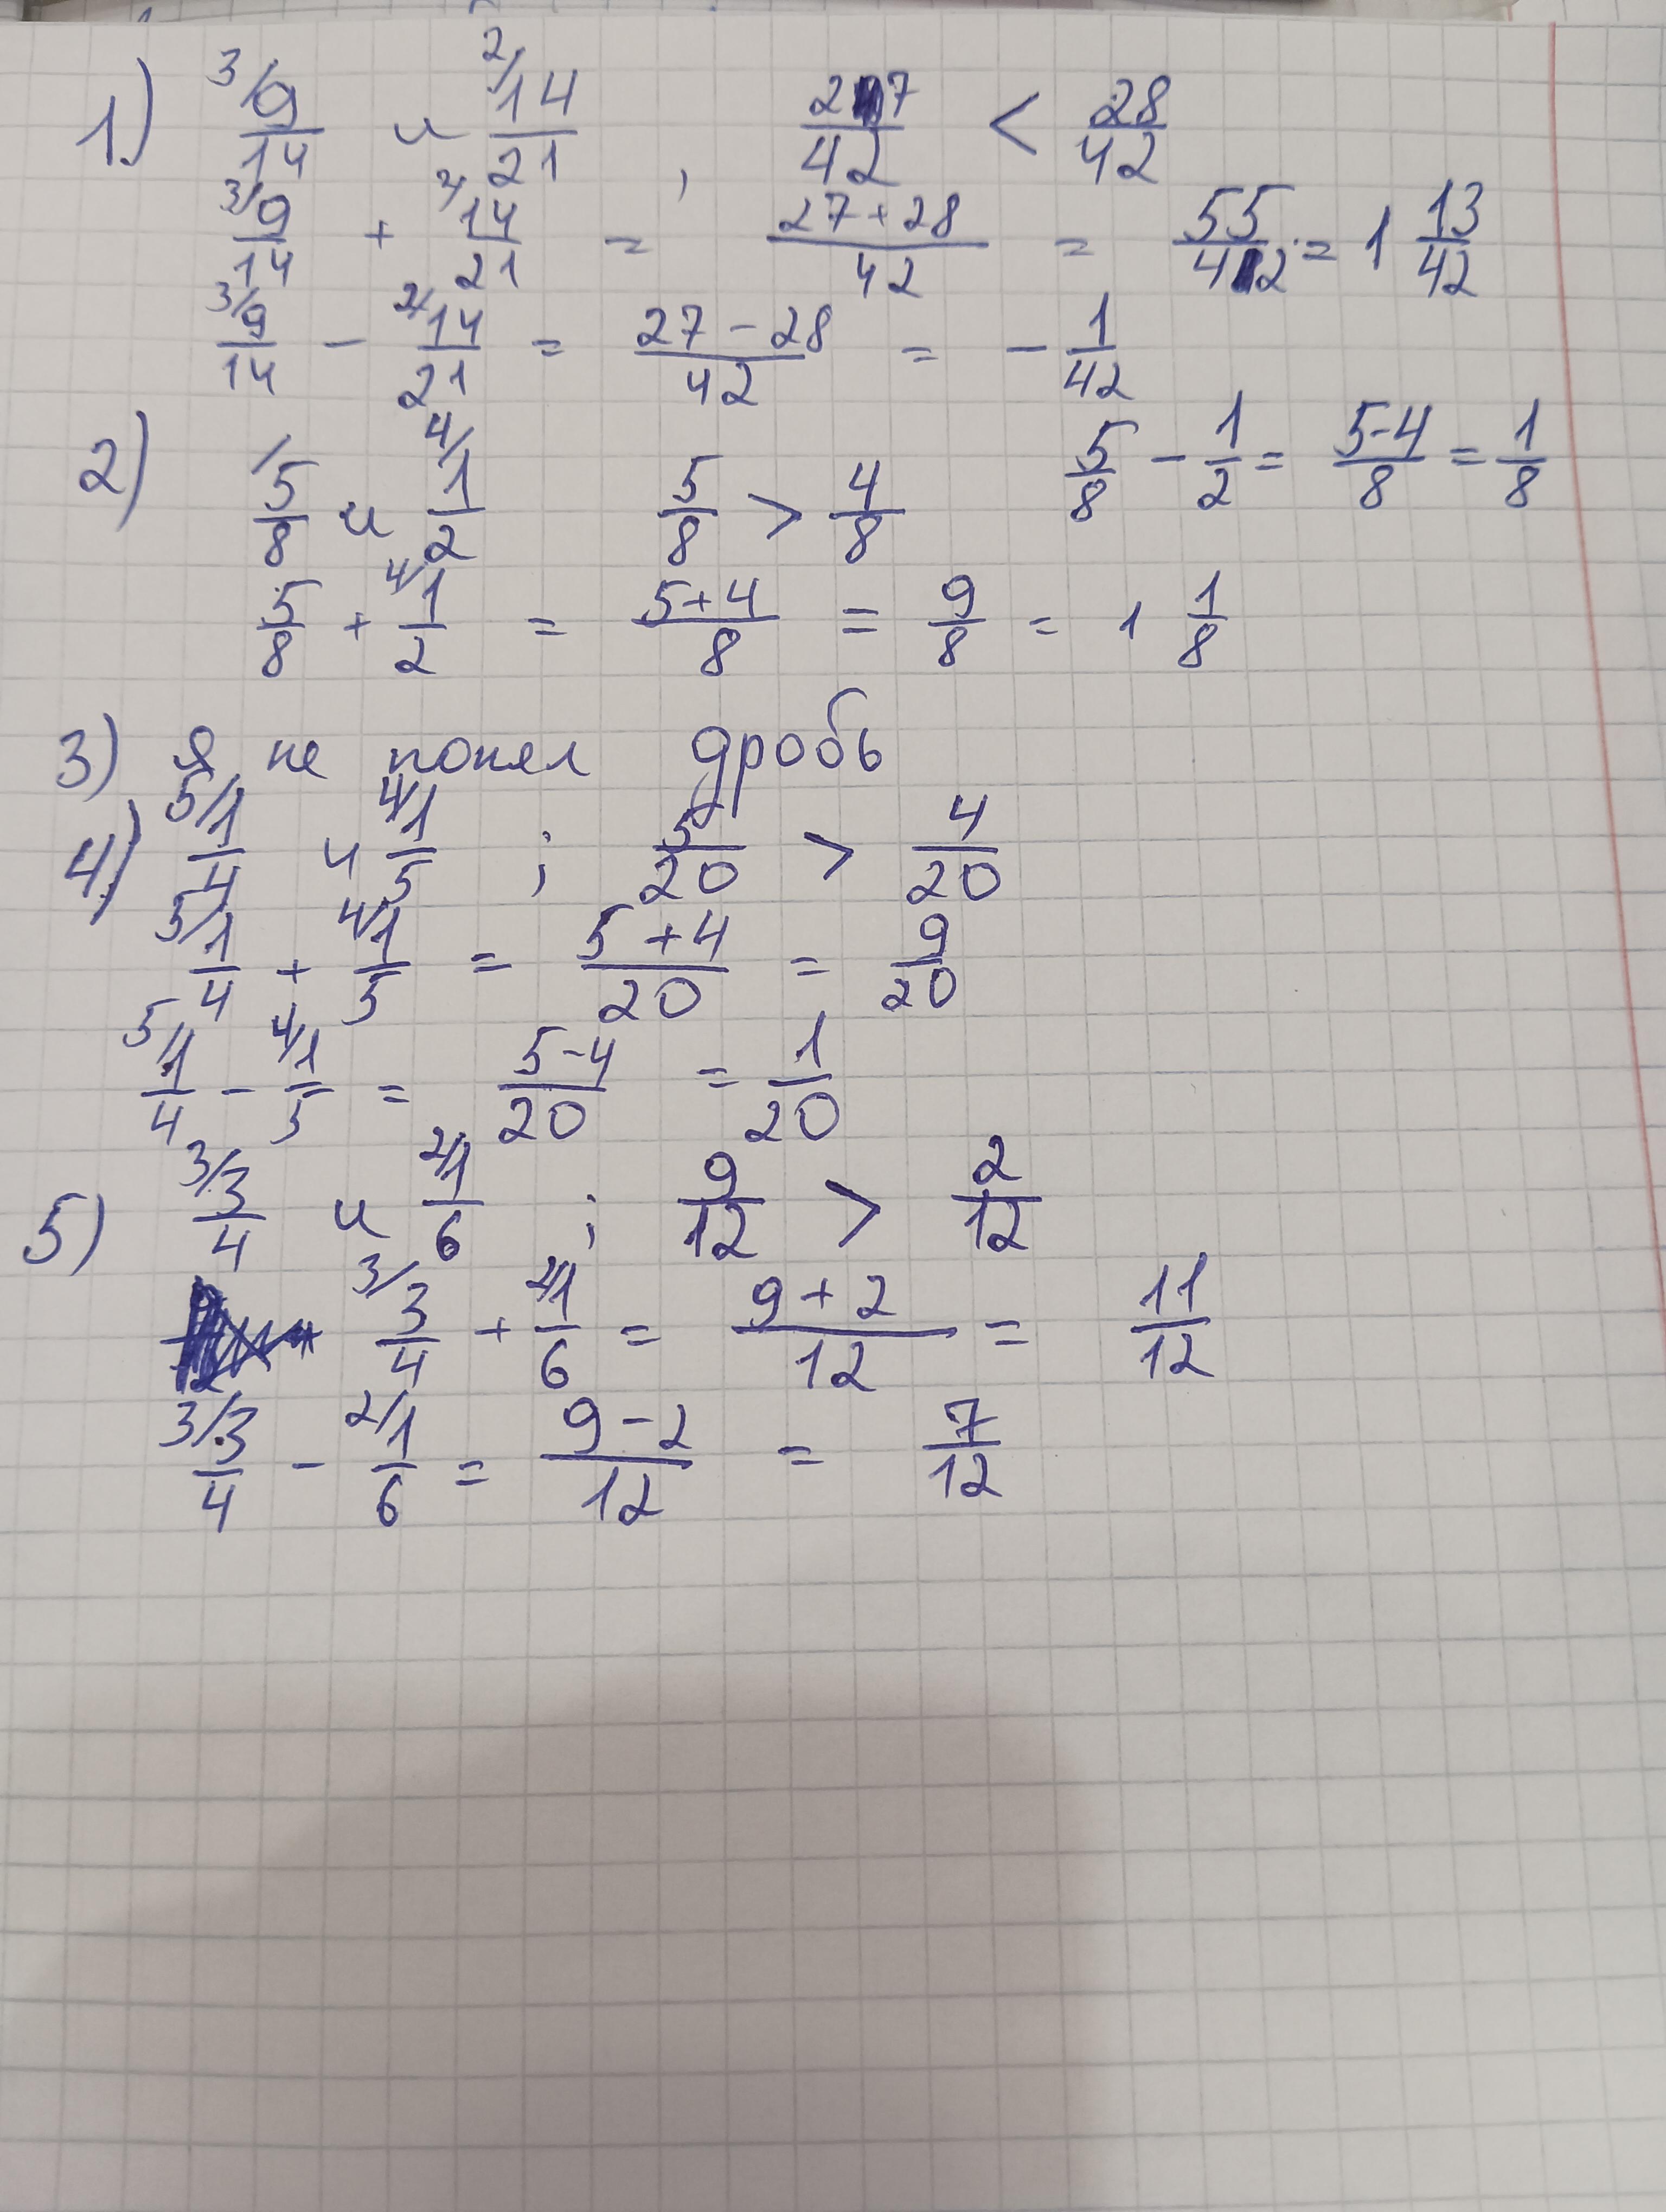 1) 3/9/14 и 2/14/21 , 27/42 < 28/42
3/9/14 + 2/14/21 = 27+28/42 = 55/42 = 1 13/42
3/9/14 - 2/14/21 = 27-28/42 = - 1/42
2) /5/8 и 4/1/2 5/8 > 4/8 5/8 - 1/2 = 5-4/8 = 1/8
5/8 + 4/1/2 = 5+4/8 = 9/8 = 1 1/8
3) я не понял дробь
4) 5/1/4 и 4/1/5 ; 5/20 > 4/20
5/1/4 + 4/1/5 = 5+4/20 = 9/20
5/1/4 - 4/1/5 = 5-4/20 = 1/20
5) 3/3/4 и 2/1/6 ; 9/12 > 2/12
3/3/4 + 2/1/6 = 9+2/12 = 11/12
3/3/4 - 2/1/6 = 9-2/12 = 7/12